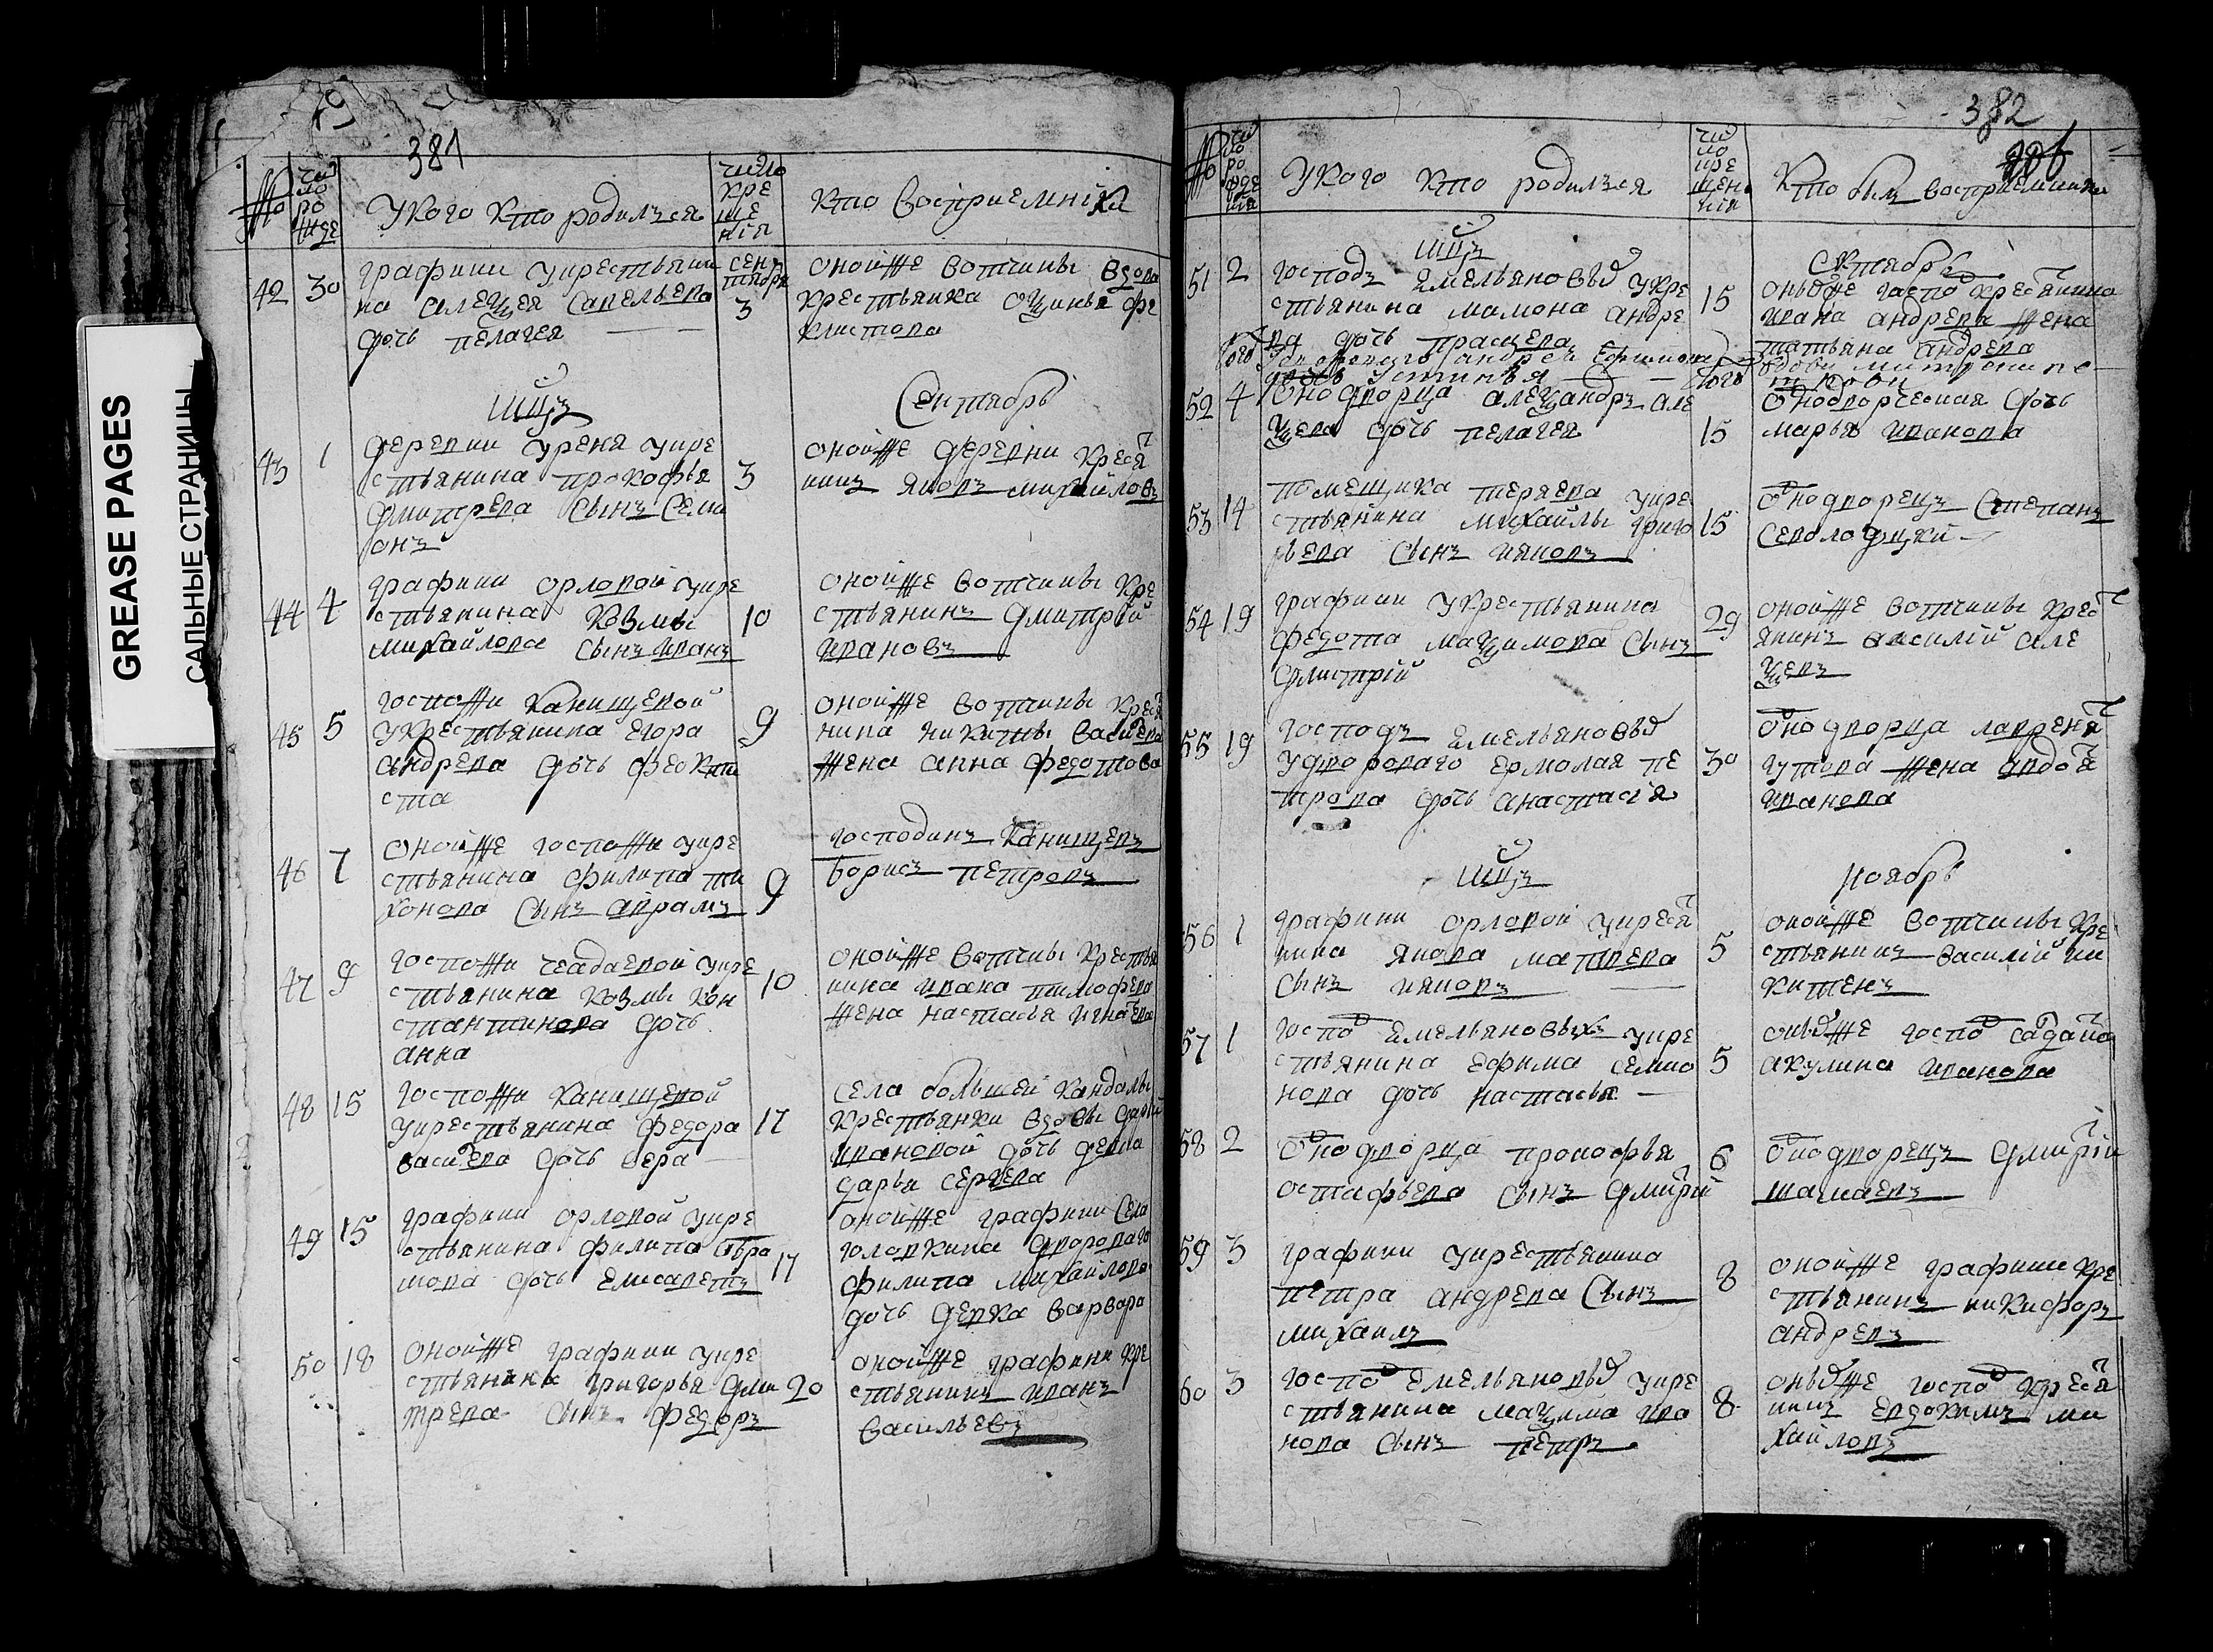 GREASE PAGES
САЛЬНЫЕ СТРАНИЦЫ
381
№
число рожде
У кого кто родился
число крещения
Кто восприемники
42 30
графини укрестьяни
на алеѯея савельева
дочь пелагея
сентября
3
оной же вотчины вдова
крестьянка
43 1
деревни урена укре
стьянина прокофья
дмитрева сынъ семи
онъ
3
Сентябрь
оной же деревни крест
нинъ яковъ михайловъ
44 4
графини орловой укре
стьянина козмы
михайлова сынъ иванъ
10
оной же вотчины кре
стьянинъ дмитрий
ивановъ
45 5
госпожи канищевой
укрестьянина егора
андрева дочь феокти
ста
9
оной же вотчины крест
нина никиты васильева
жена анна федотова
46 7
оной же госпожи укре
стьянина филипа ти
хонова сынъ аврамъ
9
господинъ канищевъ
борисъ петровъ
47 9
госпожи чеадаевой укре
стьянина козмы кон
стантинова дочь
анна
10
оной же вотчины крестья
нина ивана тимофева
жена настасья игнатева
48 15
госпожи канищевой
укрестьянина федора
васильева дочь вера
17
села большей кандалы
крестьянки вдовы
ивановой дочь девка
дарья сергева
49 15
графини орловой укре
стьянина филипа авра
мова дочь елисаветъ
17
оной же графини села
головкина дворового
филипа михайлова
дочь девка варвара
50 18
оной же графини укре
стьянина григорья дми
трева сынъ федоръ
20
оной же графини кре
стьянинъ иванъ
васильевъ
382
№
число рождения
У кого кто родился
число крещения
Кто был восприемники
51 2
господъ емельяновых укре
стьянина мамона андре
ва дочь прасковя
15
Октябрь
оных же госпо крестянина
ивана андрева жена
татьяна андрева
дворового андрея ефимова
дочь устинья
того
52 4
однодворца алеѯандръ але
ѯева дочь пелагея
15
однодворческая дочь
марья иванова
53 14
помещика теряева укре
стьянина михайлы григо
рьева сынъ иаковъ
15
однодворецъ степанъ
54 19
графини укрестьянина
федота маѯимова сынъ
дмитрий
29
оной же вотчины крест
янинъ василий але
ѯевъ
55 19
господъ емельяновых
у дворового ермолая пе
трова дочь анастасия
30
однодворца лаврентя
гутова жена авдотя
иванова
ноябрь
56 1
графини орловой укрестя
нина якова матвева
сынъ иаковъ
5
оной же вотчины кре
стьянинъ василий ни
китенъ
57 1
госпо емельяновыхъ укре
стьянина ефима семио
нова дочь настасья
5
оных же госпо
акулина иванова
58 2
однодворца прокофья
остафьева сынъ дмитрий
6
однодворецъ дмитрий
59 3
графини укрестьянина
петра андрева сынъ
михаилъ
8
оной же графини кре
стьянинъ никифоръ
андревъ
60 3
госпо емельяновых укре
стьянина маѯима ива
нова сынъ петръ
8
оных же госпо крестя
нинъ евдокимъ ми
хайловъ